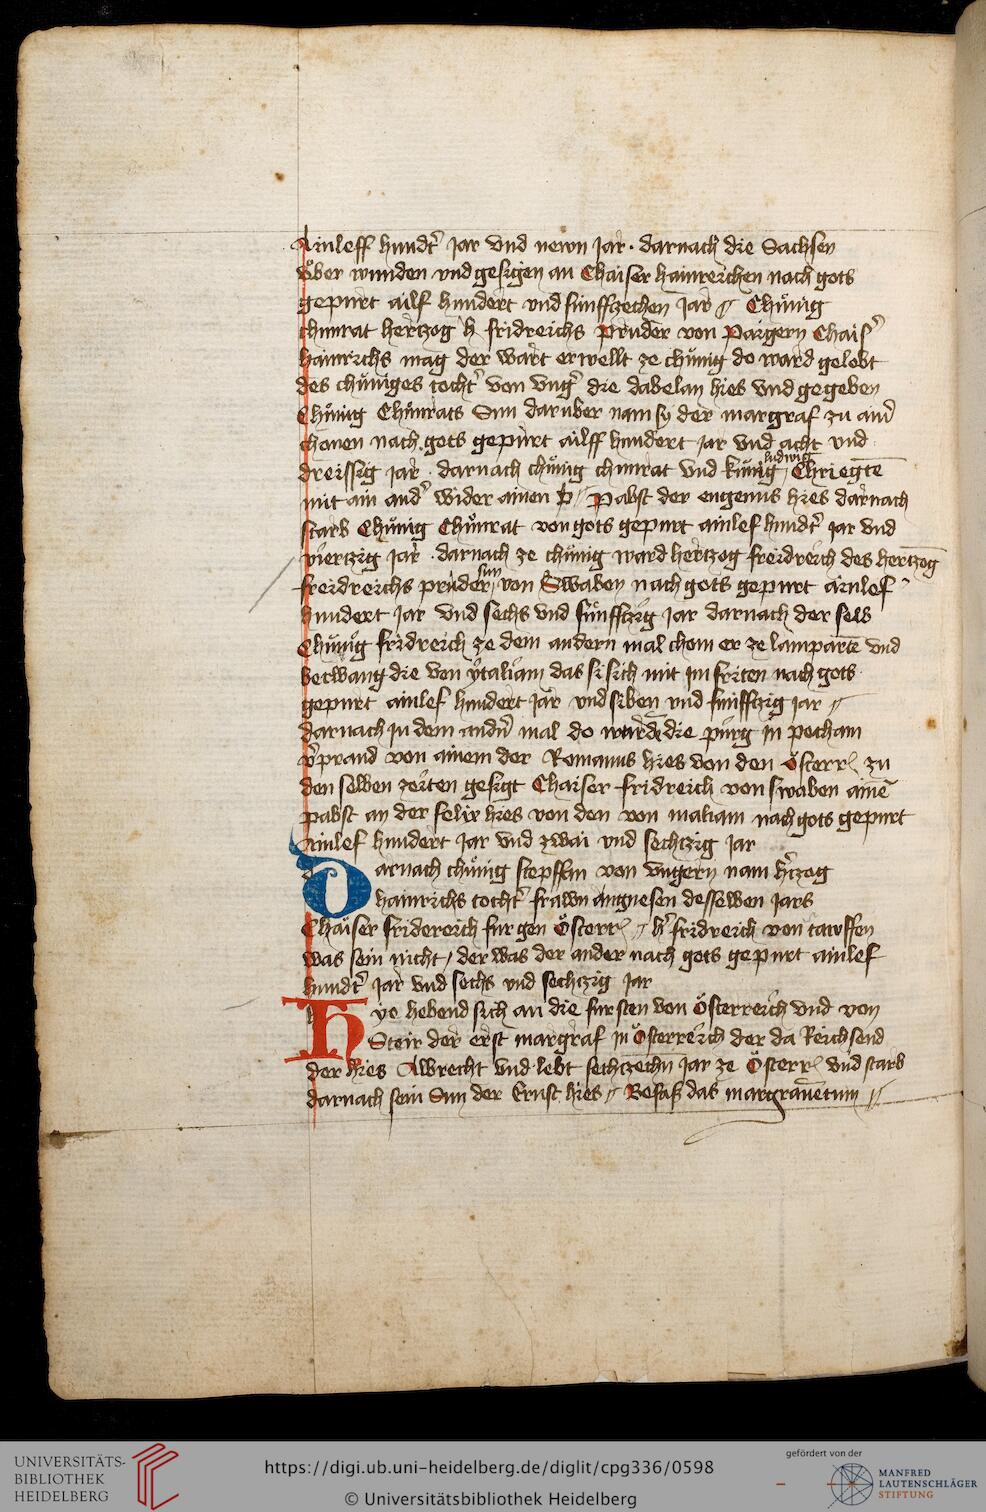 Ainleff hundt̉ Jar vnd newn Jar · darnach die Sachsen
vͦber wunden vnd gesigen an Chaiser hainreichen nach gots
gepurt ailf hundert vnd funffzechen Jar Chuͦnig
chunrat hertzog h fridreichs pruder von paigern Chais̉
hainrichs mag der wart erwellt ze chuͦnig do ward gelobt
des chuͦniges tocht̉ von vng̉ die dabelan hies vnd gegeben
Chuͦnig Chuͦnrats Sun daruber nam sy der margraf zu
chonen nach gots gepurt ailff hundert jar vnd acht vnd
dreissig jar · darnach chuͦnig chunrat vnd kunig ludwig Chriegtē
mit ain and̉ wider ainen pabst der eugenius hies darnach
starb Chuͦnig Chuͦnrat von gots gepurt ainlef hundt̉ jar vnd
viertzig jar · darnach ze chuͦnig ward hertzog freidreich des hertzog
freidreichs pruder sun von Swaben nach gots gepurt ainlef
hundert jar vnd sechs vnd fuͦnfftzig jar darnach der selb
Chuͦnig fridreich ze dem andern mal chom er ze lampartē vnd
betwang die von ytaliam das si sich mit im friten nach gots
gepurt ainlef hundert jar vnd siben vnd funfftzig jar
darnach in dem and̉n mal do ward die purg in pecham
v̉prand von ainem der Romanus hies von den Oͤsterr zu
den selben zeiten gesigt Chaiser fridreich von swaben ainē
pabst an der felix hies von den von mailam nach gots gepurt
Ainlef hundert jar vnd zwai vnd sechtzig jar
Darnach chuͦnig steffan von vngern nam h̉tzog
hainrichs tocht̉ frawn angnesen desselben jars
Chaiser fridereich fur gen Oͤsterr h̉ fridreich von tawffen
was sein nicht / der was der ander nach gots gepurt ainlef
hundt̉ jar vnd sechs vnd sechtzig jar
Hye hebend sich an die fursten von Oͤsterreich vnd von
Steir der erst margraf in Oͤsterreich der da Reichsend
der hies Albrecht vnd lebt sechtzechn jar ze Oͤsterr vnd starb
darnach sein Sun der Ernst hies Besass das margrauetum
UNIVERSITÄTS-
BIBLIOTHEK
HEIDELBERG
https://digi.ub.uni-heidelberg.de/diglit/cpg336/0598
© Universitätsbibliothek Heidelberg
gefördert von der
MANFRED
LAUTENSCHLÄGER
STIFTUNG